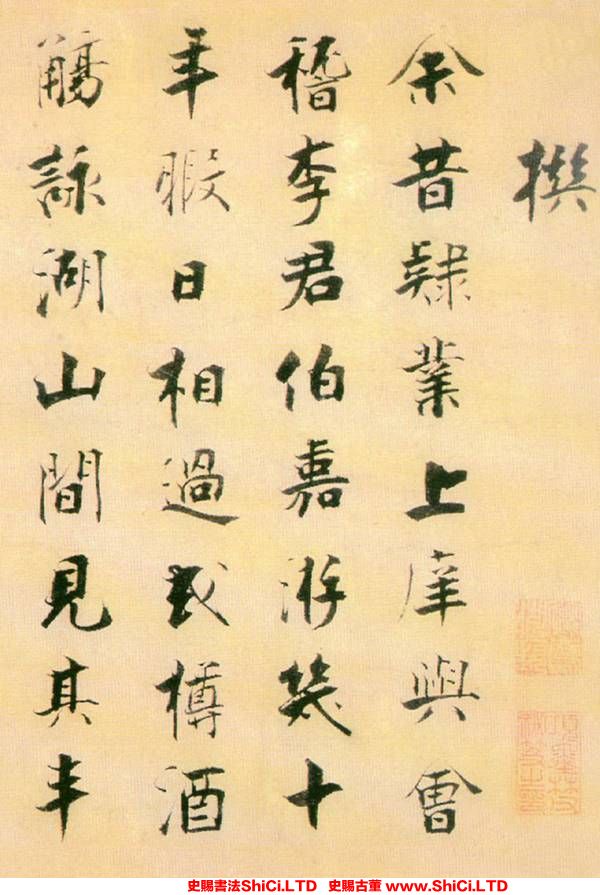 撰
余昔隸業上庠與會
稽李君伯嘉游幾十
年暇日相過或樽酒
觴詠湖山間見其丰
史賜書法ShiCi.LTD 史賜古董 www.ShiCi.LTD